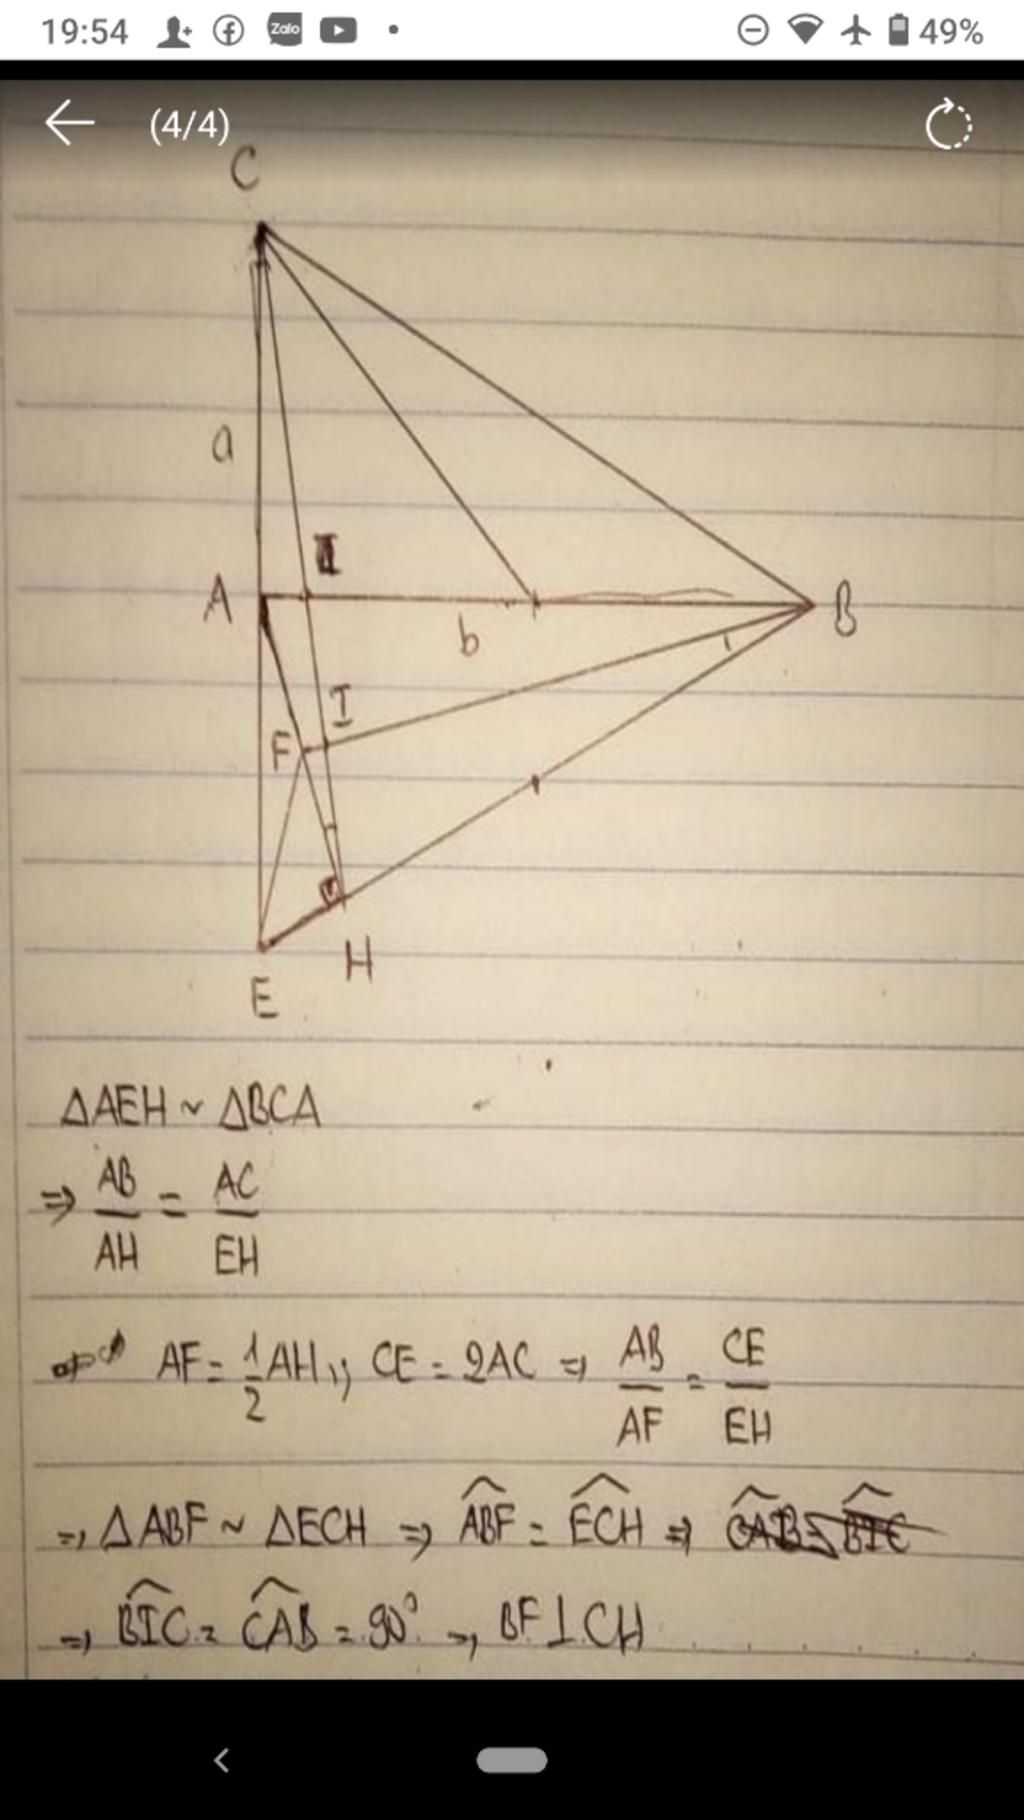 19:54 Zalo 49%
(4/4)
C
a
I
A
B
b
I
F
H
E
ΔAEH ~ ΔBCA
⇒ AB/AH = AC/EH
AF = 1/2 AH ; CE = 2AC ⇒ AB/AF = CE/EH
⇒ ΔABF ~ ΔECH ⇒ \widehat{ABF} = \widehat{ECH} ⇒
⇒ \widehat{BIC} = \widehat{CAB} = 90° ⇒ BF ⊥ CH